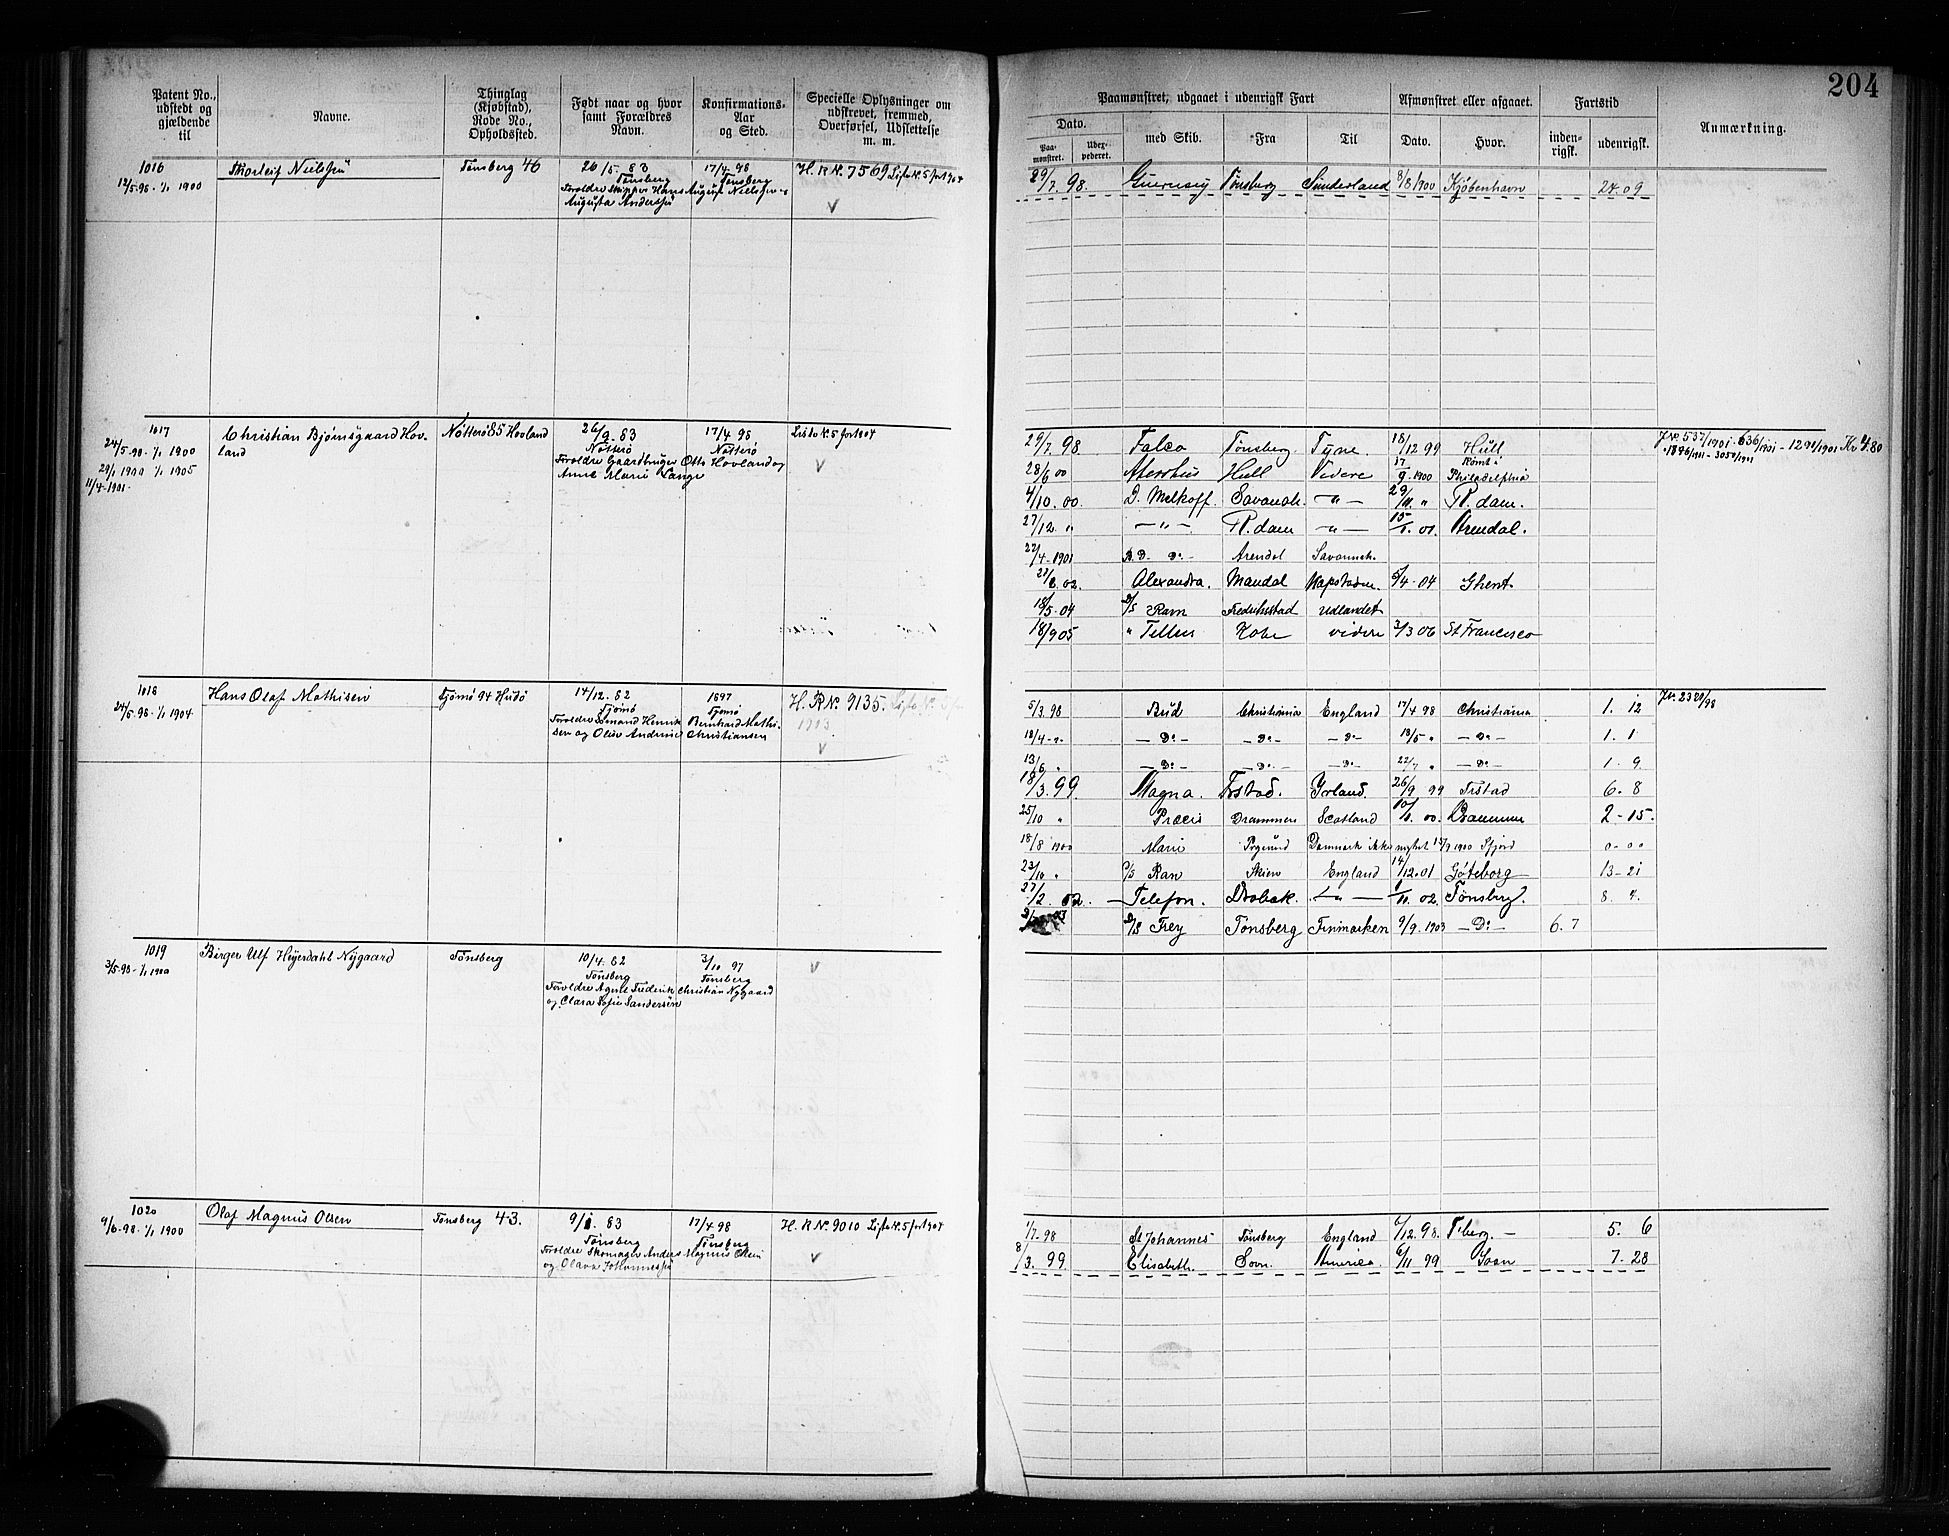 204
Patent No., udstedt og gjældende til
Navne.
Thinglag (Kjøbstad), Rode No., Opholdssted.
Født naar og hvor samt Forældres Navn.
Konfirmations-Aar og Sted.
Specielle Oplysninger om udskrevet, fremmed, Overførsel, Udslettelse m. m.
Paamønstret, udgaaet i udenrigsk Fart
Dato.
Paa-mønstret.
Udex-pederet.
med Skib.
Fra
Til
Afmønstret eller afgaaet.
Dato.
Hvor.
Fartstid
inden-rigsk.
udenrigsk.
Anmærkning.
1016
12/5-98-1/1 1900
Thorleif Nielssen
Tønsberg 46
26/5. 83
Tønsberg
17/4 98
Tønsberg
Forældre Skipper Hans August Nielssen og
Augusta Anderssen
H. R N. 7569 Liste N. 5 for 1904
29/7. 98. Guernsey Tønsberg Sunderland 8/8 1900 Kjøbenhavn 24. 09
1017
24/5-98-1/1 1900
29/1 1900 1/1 1905
11/4-1901-
Christian Bjørnsgaard Hov-
land
Nøtterø 85 Hovland
26/9. 83
Nøtterø
17/4 98
Nøtterø
Forældre Gaardbruger Otto Hovland og
Anne Marie Lange
Liste N. 5 for 1904
29/7. 98. Falco Tønsberg Tyne 18/12 99 Hull
28/6 00 Hull Videre 17/9-1900 Rømt i Philadelphia
4/10. 00. D. Melkoff. Savanah. -"- 29/11. " R. dam.
27/12 " -"- R. dam -"- 15/1. 01. Arendal.
22/4-1901 Do Arendal Savannah.
02. Alexandra. Mandal Kapstaden. 5/4-04 Ghent
18/5-04 D/S Ravn Fredrikstad Udlandet
18/9 05 " Tellus Kobe videre 3/3 06 St Francisco
J.No. 537/1901 - 636/1901 - 1291/1901 Kr 4.80
1896/1901 - 3050/1901
1018
24/5-98-1/1 1904
Hans Olaf Mathisen
Tjømø 94 Hudø
14/12. 82
Tjømø
1897
Tjømø
Forældre Henrik Bernhard Mathi-
sen og Christiansen
H. R N. 9135. Liste N. 5 for
1903
5/3. 98 Brud Christiania England 17/4 98 Christiania 1. 12
18/4-" -Do- -Do- -Do- 18/5 " -Do- 1. 1
13/6 " -Do- -Do- -Do- 22/7 " -Do- 1. 9
18/3. 99. Magna. Frstad. Irland. 26/9 99 Frstad 6. 8
25/10 " Præcis Drammen Scotland 10/1. 00. 2-15.
18/8 1900 Marie Danmark ikke 15/9 1900 0-00
23/10 " D/S Ran Skien England 14/12. 01 Gøteborg 13-21
27/2. 02. Telefon. Drøbak. -"- 1/11. 02. Tønsberg. 8. 4.
D/S Frey Tønsberg Finmarken 9/9. 1903 -Do- 6. 7
J.No. 2329/98
1019
3/5-98-1/1 1900
Birger Ulf Heyerdahl Nygaard
Tønsberg
10/4. 82
Tønsberg
3/10 97
Tønsberg
Forældre Agent Frederik Christian Nygaard
og Clara Sofie Sandersen
1020
9/6-98-1/1 1900
Olaf Magnus Olsen
Tønsberg 43.
9/1. 83
Tønsberg
17/4 98
Tønsberg
Forældre Skomager Anders Magnus Olsen
og Olava Johannessen
H. R N. 9010 Liste N. 5 for 1904
1/7-98 St Johannes Tønsberg England 6/12. 98. T.berg. - 5. 6
8/3. 99. Elisabeth. Sovn. America. 6/11 99 7. 28